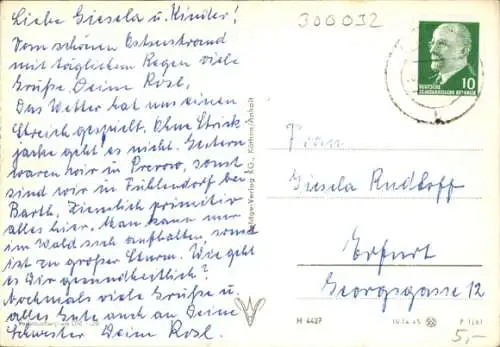 Liebe Giesela u. Kinder!
Vom schönen Ostseestrand
mit täglichem Regen viele
Grüße. Deine Rosl.
Das Wetter hat uns einen
Streich gespielt. Ohne Strick-
jacke geht es nicht. Gestern
waren wir in Prerow, sonst
sind wir in Fuhlendorf bei
Barth. Ziemlich primitiv
alles hier. Man kann nur
im Wald sich aufhalten, sonst
ist zu großer Sturm. Wie geht
es Dir gesundheitlich?
Nochmals viele Grüße u.
alles Gute auch an Deine
Schwester Deine Rosl.
300032
DEUTSCHE
DEMOKRATISCHE REPUBLIK
10
Frau
Giesela Rudloff
Erfurt
Georgsgasse 12
-Verlag KG., Köthen/Anhalt
H 4427
P 1/61
5,-